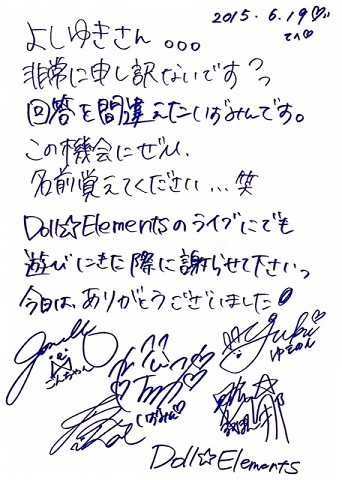 2015.6.19♡
よしゆきさん。。。
非常に申し訳ないです？っ
回答を間違えたいばみんです。
この機会にぜひ、
名前覚えてください…笑
Doll☆Elementsのライブにでも
遊びにきた際に謝らせて下さいっ
今日は、ありがとうございました！
Yuki
ゆきのん
Doll☆Elements